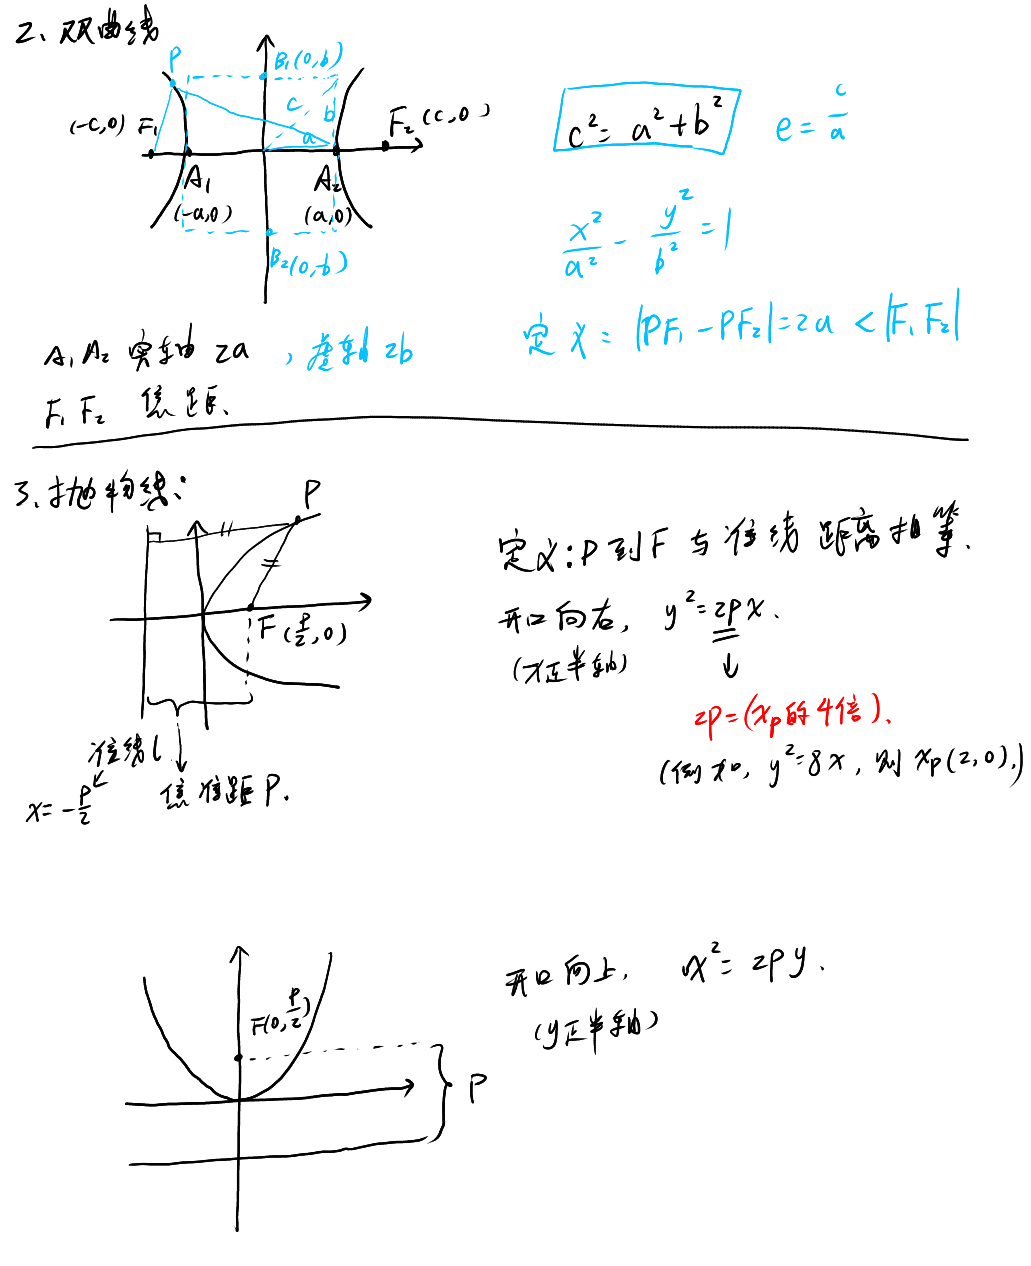 2、双曲线
P
B₁(0,b)
c
b
a
(-c,0) F₁
F₂(c,0)
A₁
(-a,0)
A₂
(a,0)
B₂(0,-b)
c²=a²+b²
e=c/a
x²/a² - y²/b² =1
定义: |PF₁-PF₂|=2a<|F₁F₂|
A₁A₂ 实轴 2a , 虚轴 2b
F₁F₂ 焦距.
3、抛物线:
P
F(p/2,0)
准线l
x=-p/2
焦准距P.
定义:P到F与准线距离相等.
开口向右, y²=2px.
(x正半轴)
2p=(xₚ的4倍).
(例如, y²=8x, 则xₚ(2,0).)
F(0,p/2)
P
开口向上, x²=2py.
(y正半轴)